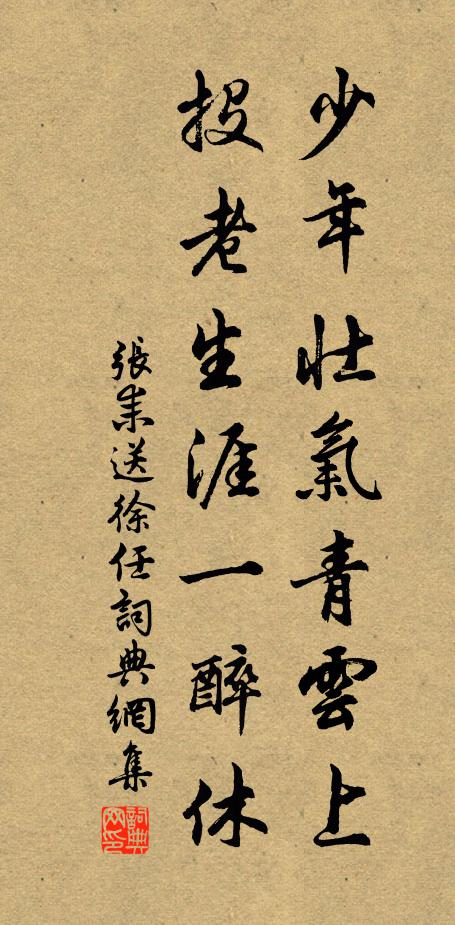 少年壯氣青雲上
投老生涯一醉休
張耒送徐任詞典網集
詞典網印